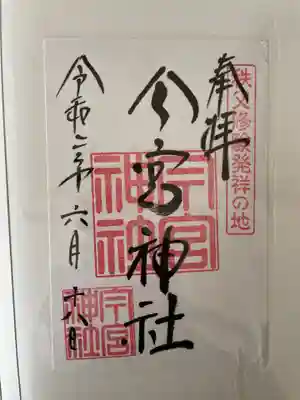 奉拝
秩父修験発祥の地
今宮神社
今宮神社
令和二年六月十八日
今宮神社